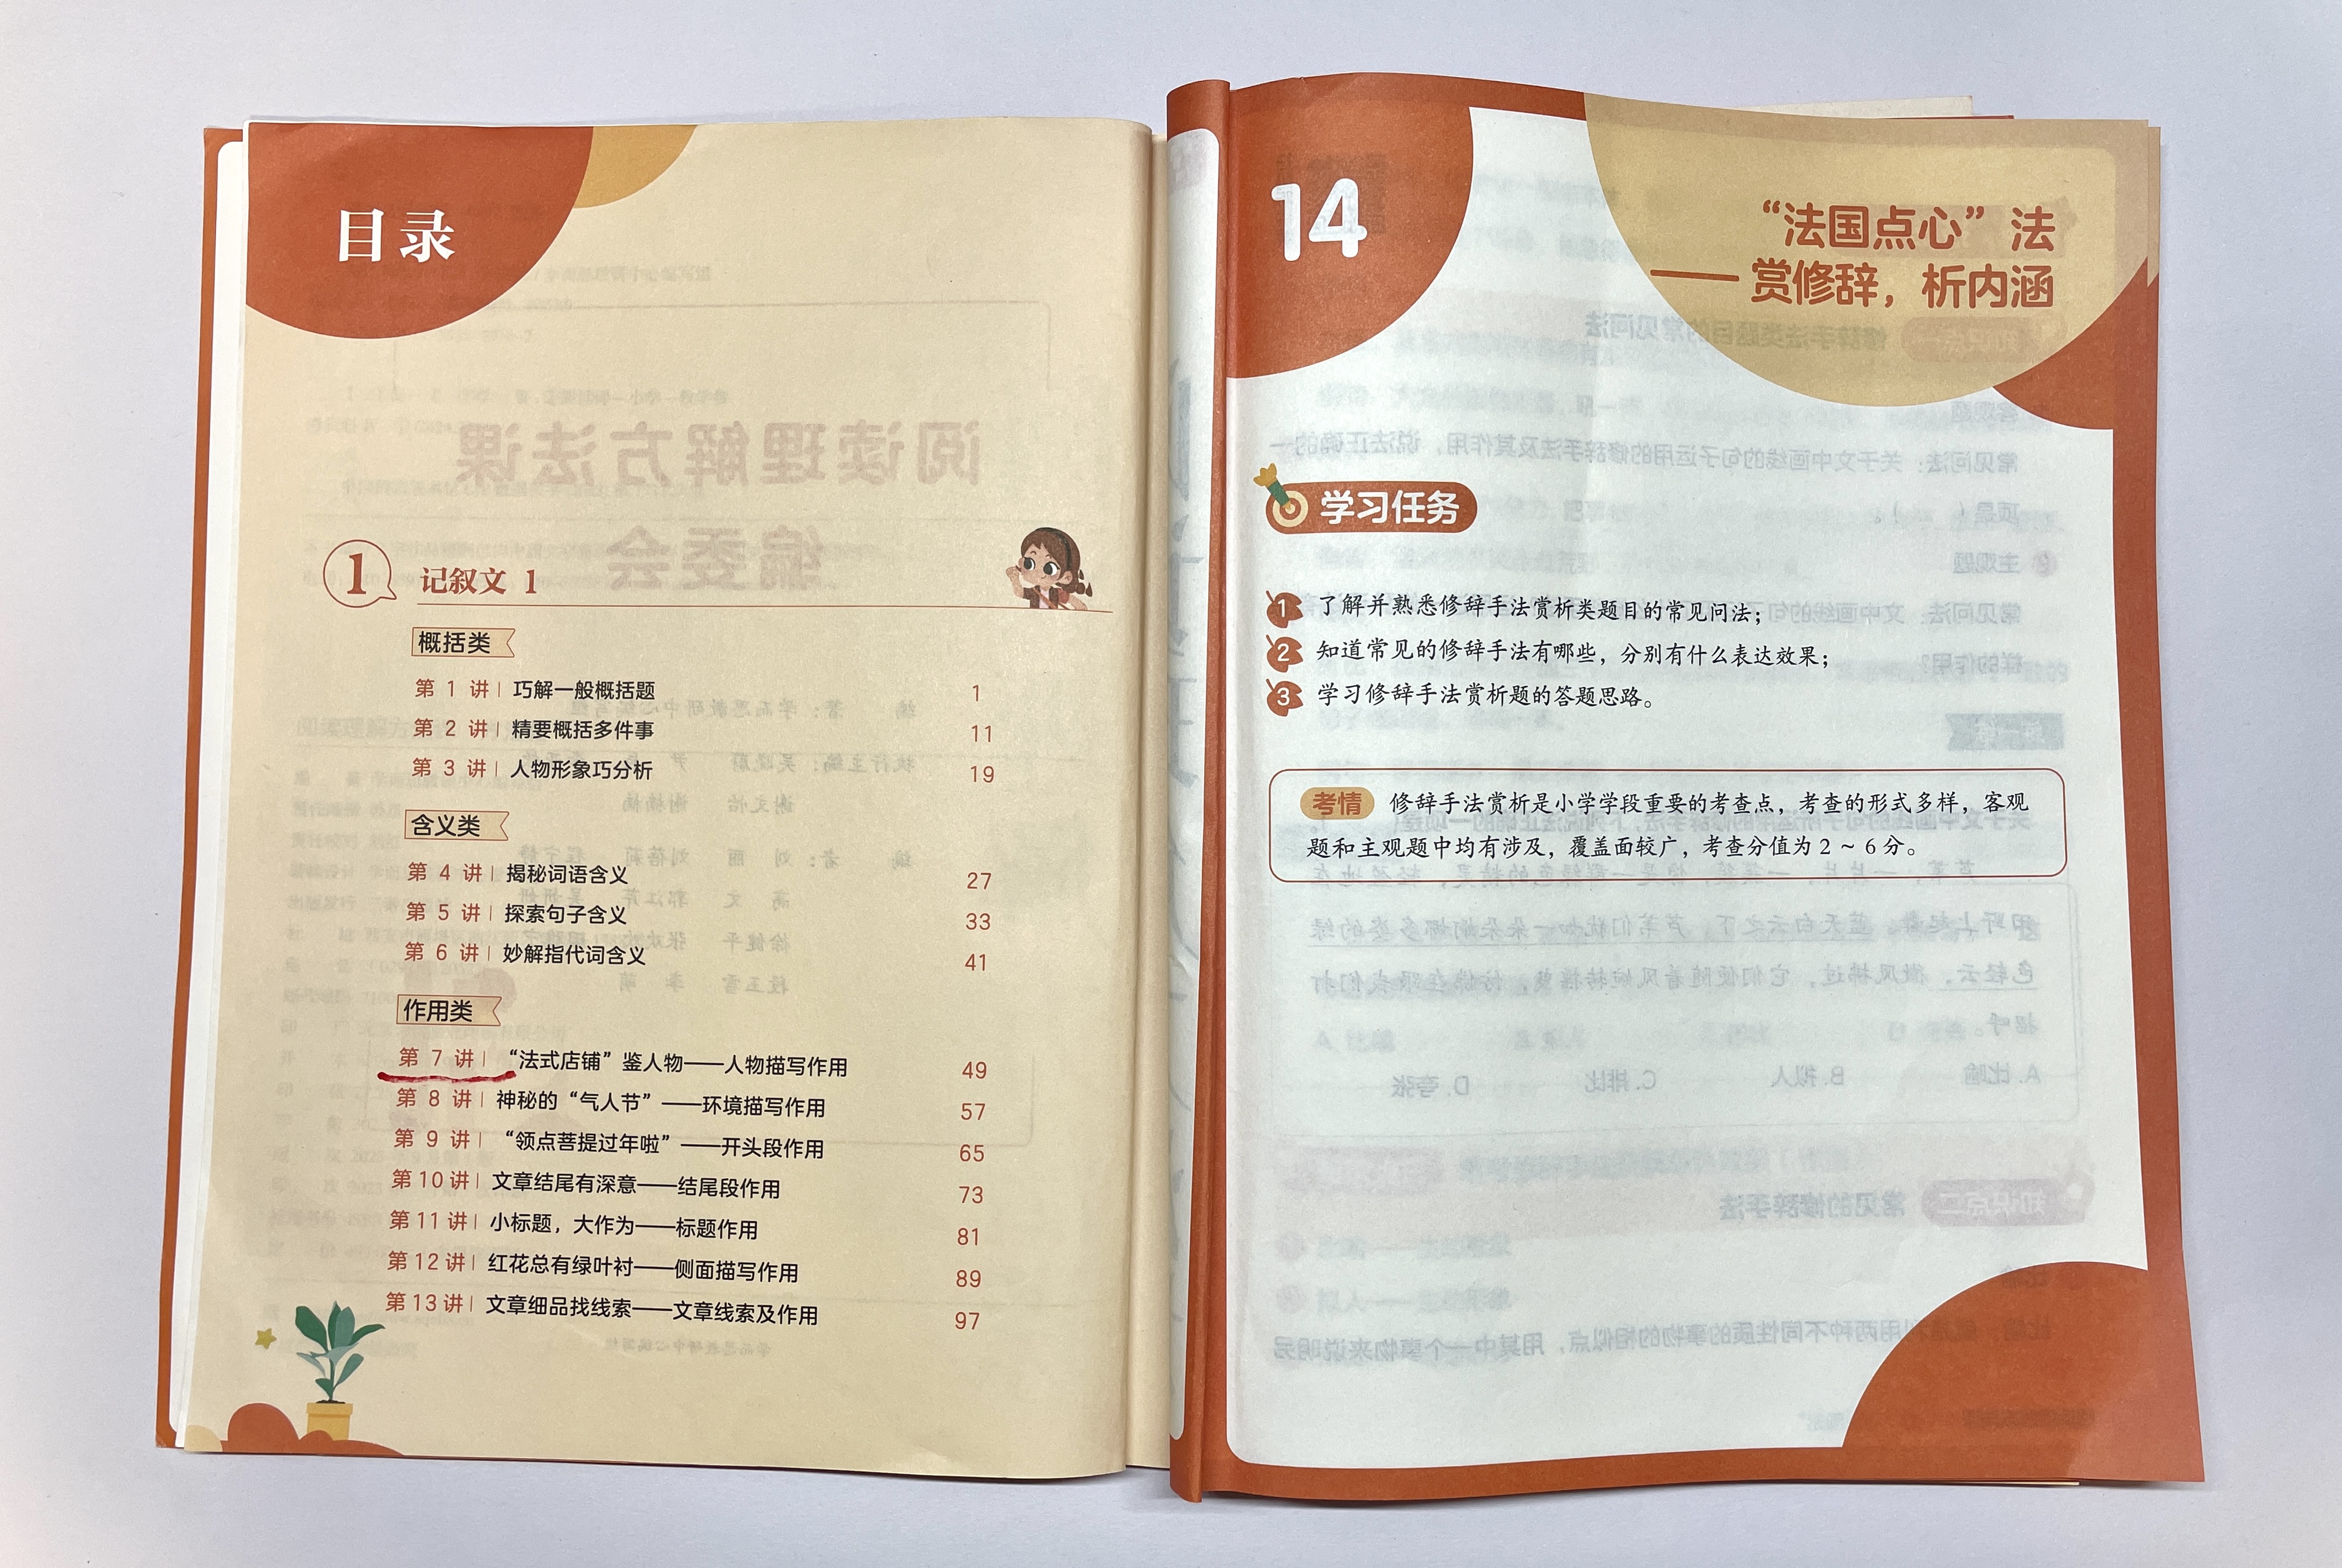 目录
1 记叙文 1
概括类
第 1 讲 | 巧解一般概括题 1
第 2 讲 | 精要概括多件事 11
第 3 讲 | 人物形象巧分析 19
含义类
第 4 讲 | 揭秘词语含义 27
第 5 讲 | 探索句子含义 33
第 6 讲 | 妙解指代词含义 41
作用类
第 7 讲 | “法式店铺”鉴人物——人物描写作用 49
第 8 讲 | 神秘的“气人节”——环境描写作用 57
第 9 讲 | “领点菩提过年啦”——开头段作用 65
第 10 讲 | 文章结尾有深意——结尾段作用 73
第 11 讲 | 小标题，大作为——标题作用 81
第 12 讲 | 红花总有绿叶衬——侧面描写作用 89
第 13 讲 | 文章细品找线索——文章线索及作用 97
14
“法国点心”法
——赏修辞，析内涵
学习任务
1 了解并熟悉修辞手法赏析类题目的常见问法；
2 知道常见的修辞手法有哪些，分别有什么表达效果；
3 学习修辞手法赏析题的答题思路。
考情 修辞手法赏析是小学学段重要的考查点，考查的形式多样，客观
题和主观题中均有涉及，覆盖面较广，考查分值为 2 ~ 6 分。